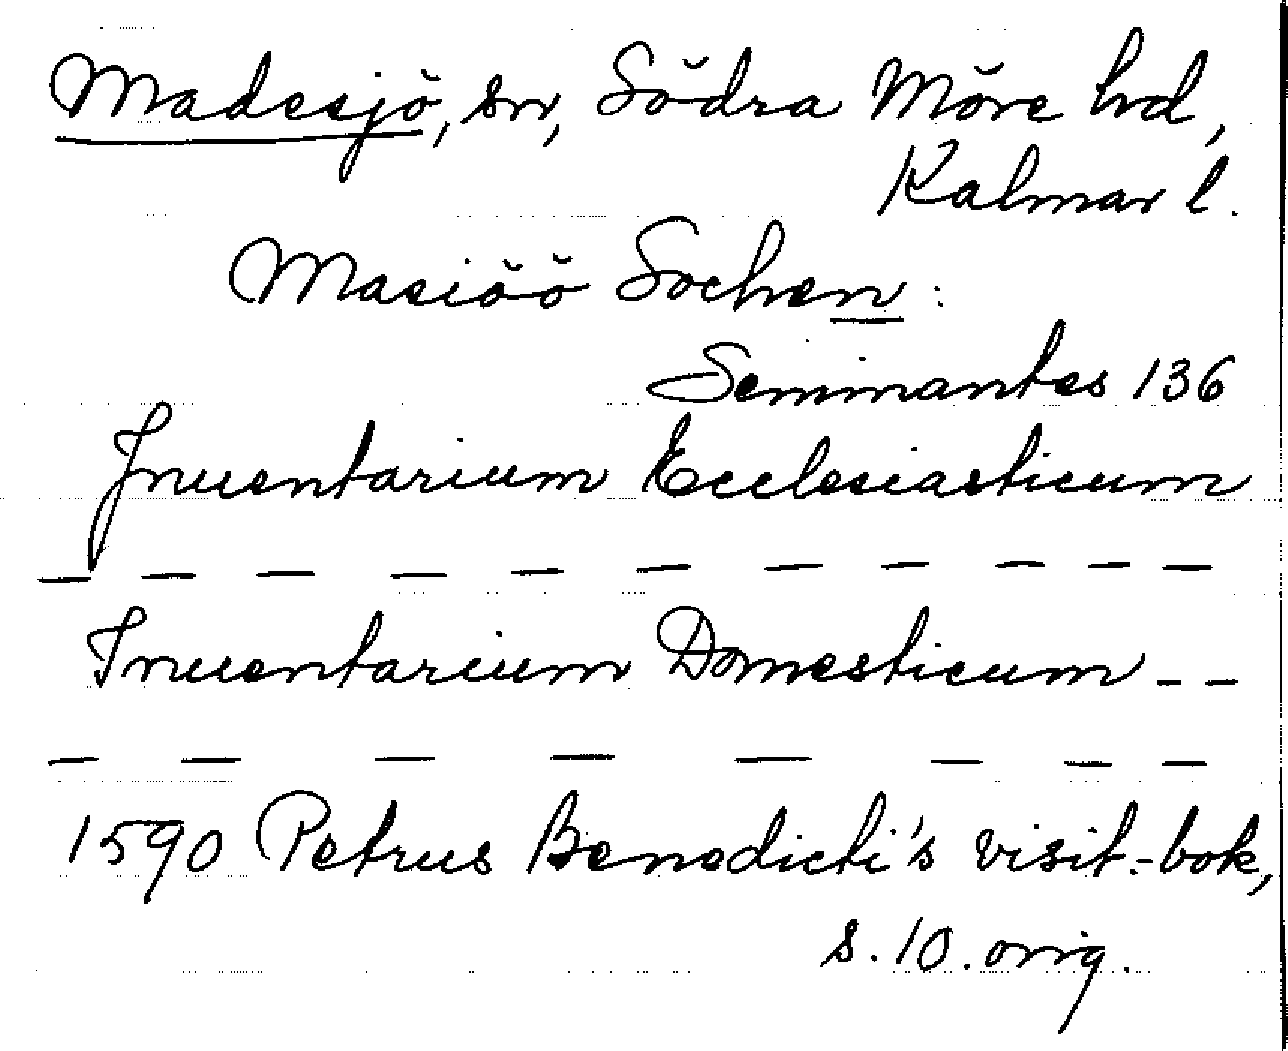 Madesjö, sn, Södra Möre hd,
Kalmar l.
Masiöö Sochen:
Seminantes 136
Inuentarium Ecclesiasticum
— — — — — — — — — — —
Inuentarium Domesticum - -
— — — — — — — —
1590 Petrus Benedicti's visit.-bok,
s. 10. orig.